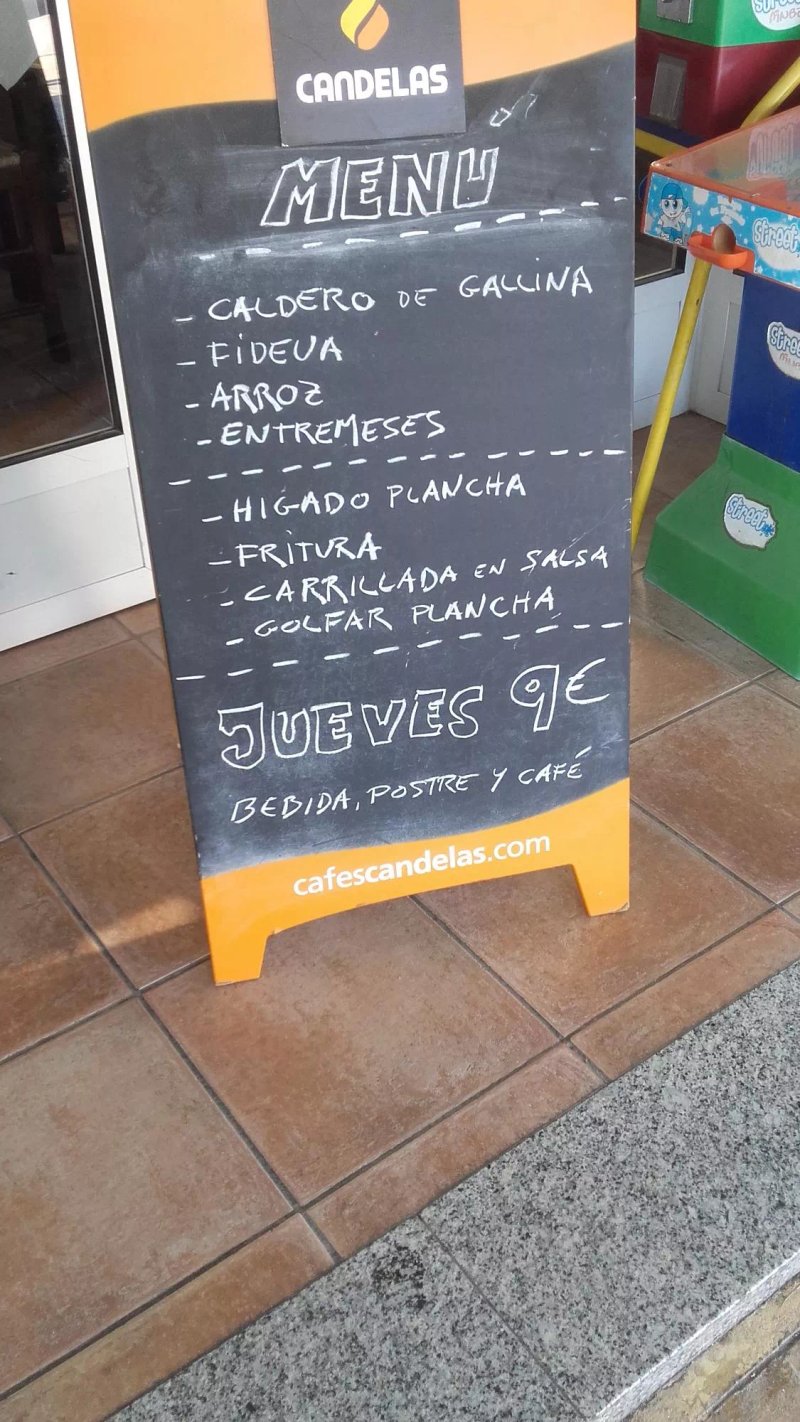 CANDELAS
MENU
- CALDERO DE GALLINA
- FIDEUA
- ARROZ
- ENTREMESES
- HIGADO PLANCHA
- FRITURA
- CARRILLADA EN SALSA
- GOLFAR PLANCHA
JUEVES 9€
BEBIDA, POSTRE Y CAFÉ
cafescandelas.com
Street
Street
Street